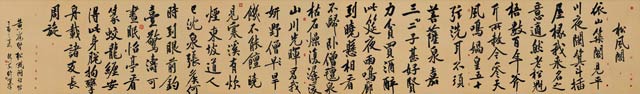 松風閣
依山築閣見平
川夜闌箕斗插
屋椽我來名之
意適然老松魁
梧數百年斧
斤所赦今參天
風鳴媧皇五十
弦洗耳不須
菩薩泉嘉
二三子甚好賢
力貧買酒醉
此筵夜雨鳴廊
到曉懸相看
不歸臥僧氈泉
枯石燥復潺湲
山川光輝為我
妍野僧旱飢
不能饘曉
見寒溪有炊
煙東坡道人
已沉泉張侯何
時到眼前釣
臺驚濤可
晝眠怡亭看
篆蛟龍纏安
得此身脫拘攣
舟載諸友長
周旋
黃庭堅松風閣詩